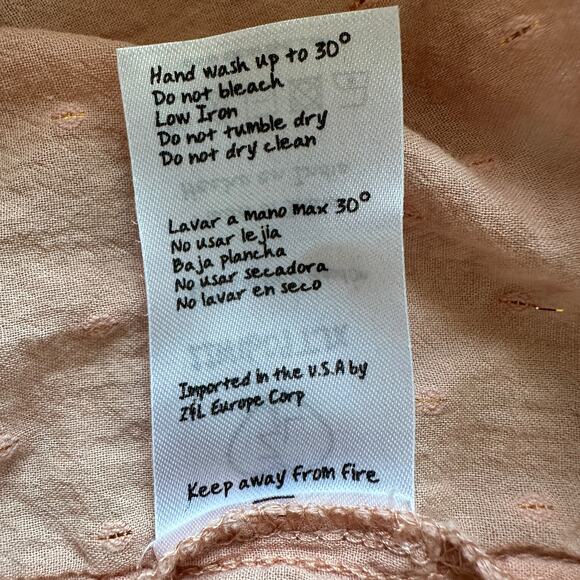 Hand wash up to 30°
Do not bleach
Low Iron
Do not tumble dry
Do not dry clean
Lavar a mano max 30°
No usar lejía
Baja plancha
No usar secadora
No lavar en seco
Imported in the U.S.A by
Z&L Europe Corp
Keep away from fire